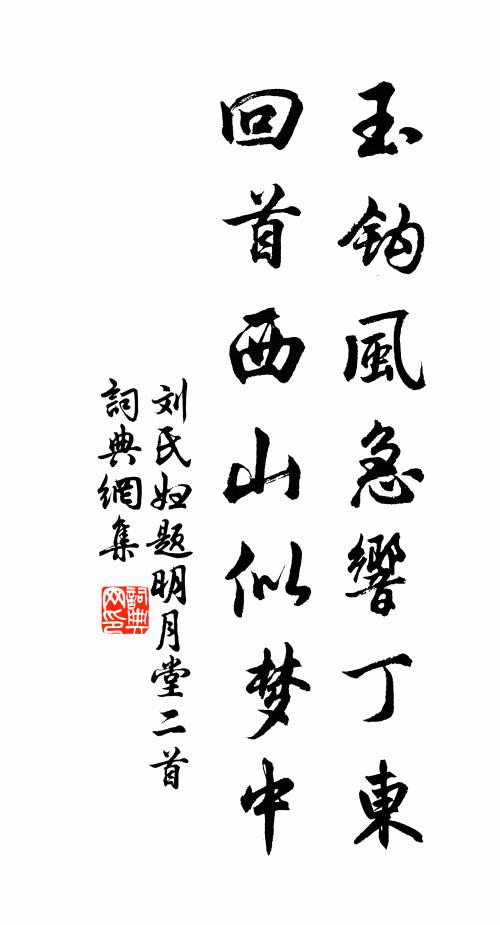 玉鈎風急響丁東
回首西山似梦中
刘氏妞题明月堂二首
詞典網集
詞典网印